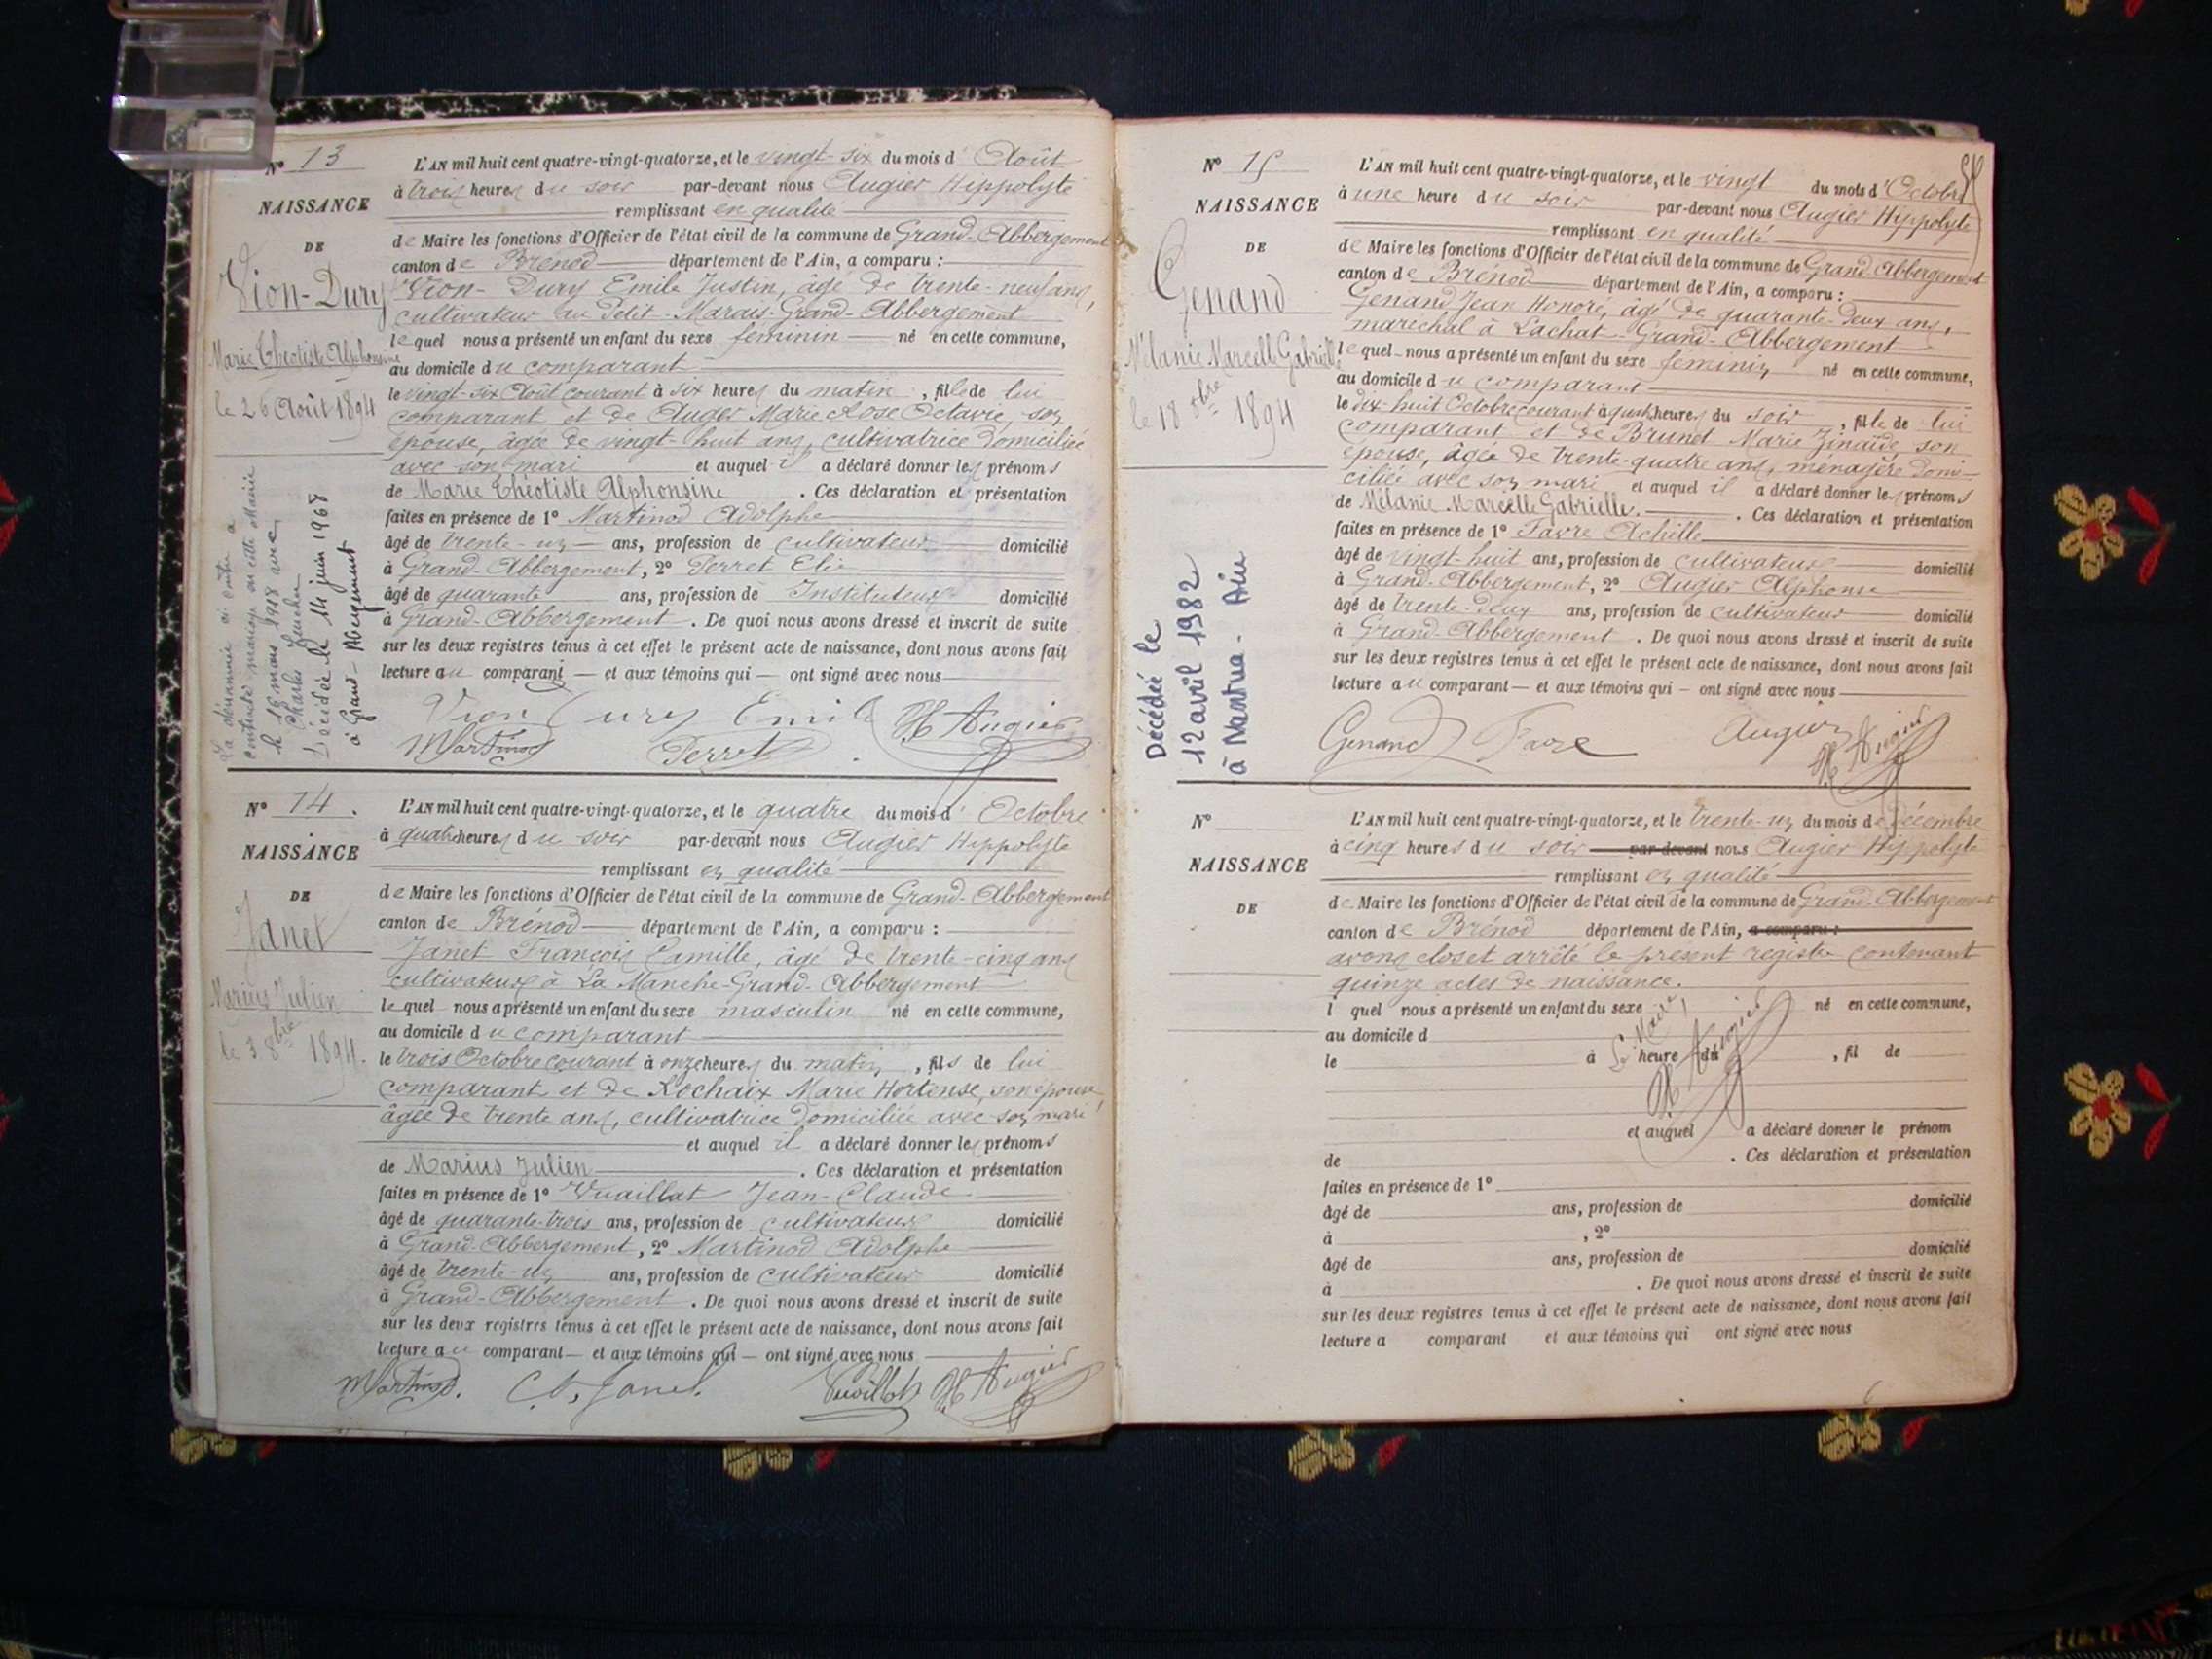 N° 13
NAISSANCE
DE
Vion-Dury
Marie Théotiste Alphonsine
le 26 Août 1894
La dénommée ci contre a
contracté mariage en cette Mairie
le 16 mars 1918 avec
Charles
Décédée le 14 juin 1968
à Grand-Abergement
L'AN mil huit cent quatre-vingt-quatorze, et le vingt-six du mois d' Août
à trois heures du soir par-devant nous Augier Hippolyte
remplissant en qualité
de Maire les fonctions d'Officier de l'état civil de la commune de Grand-Abbergement
canton de Brénod département de l'Ain, a comparu :
Vion-Dury Emile Justin, âgé de trente-neuf ans,
cultivateur au Petit-Marais-Grand-Abbergement
lequel nous a présenté un enfant du sexe féminin né en cette commune,
au domicile du comparant
le vingt-six Août courant à six heures du matin, fille de lui
comparant et de Auger Marie Rose Octavie, son
épouse, âgée de vingt-huit ans, cultivatrice domiciliée
avec son mari et auquel il a déclaré donner les prénoms
de Marie Théotiste Alphonsine . Ces déclaration et présentation
faites en présence de 1° Martinod Adolphe
âgé de trente-un ans, profession de cultivateur domicilié
à Grand-Abbergement, 2° Perret Elie
âgé de quarante ans, profession de Instituteur domicilié
à Grand-Abbergement . De quoi nous avons dressé et inscrit de suite
sur les deux registres tenus à cet effet le présent acte de naissance, dont nous avons fait
lecture au comparant — et aux témoins qui — ont signé avec nous
Vion Dury Emile H Augier
Martinod Perret
N° 14.
NAISSANCE
DE
Janet
Marius Julien
le 3 8bre 1894.
L'AN mil huit cent quatre-vingt-quatorze, et le quatre du mois d' Octobre
à quatre heures du soir par-devant nous Augier Hippolyte
remplissant en qualité
de Maire les fonctions d'Officier de l'état civil de la commune de Grand-Abbergement
canton de Brénod département de l'Ain, a comparu :
Janet François Camille, âgé de trente-cinq ans
cultivateur à La Manche-Grand-Abbergement
lequel nous a présenté un enfant du sexe masculin né en cette commune,
au domicile du comparant
le trois Octobre courant à onze heures du matin, fils de lui
comparant et de Rochaix Marie Hortense, son épouse,
âgée de trente ans, cultivatrice domiciliée avec son mari
et auquel il a déclaré donner les prénoms
de Marius Julien . Ces déclaration et présentation
faites en présence de 1° Vuaillat Jean-Claude
âgé de quarante-trois ans, profession de cultivateur domicilié
à Grand-Abbergement, 2° Martinod Adolphe
âgé de trente-un ans, profession de cultivateur domicilié
à Grand-Abbergement . De quoi nous avons dressé et inscrit de suite
sur les deux registres tenus à cet effet le présent acte de naissance, dont nous avons fait
lecture au comparant — et aux témoins qui — ont signé avec nous
Martinod. Janet. H Augier
N° 15
NAISSANCE
DE
Genand
Mélanie Marcelle Gabrielle
le 18 8bre 1894
Décédée le
12 avril 1982
à Nantua - Ain
L'AN mil huit cent quatre-vingt-quatorze, et le vingt du mois d' Octobre
à une heure du soir par-devant nous Augier Hippolyte
remplissant en qualité
de Maire les fonctions d'Officier de l'état civil de la commune de Grand-Abbergement
canton de Brénod département de l'Ain, a comparu :
Genand Jean Honoré, âgé de quarante-deux ans,
maréchal à Lachat-Grand-Abbergement
lequel nous a présenté un enfant du sexe féminin né en cette commune,
au domicile du comparant
le dix-huit Octobre courant à quatre heures du soir, fille de lui
comparant et de Brunet Marie Zinaïde, son
épouse, âgée de trente-quatre ans, ménagère domi-
ciliée avec son mari et auquel il a déclaré donner les prénoms
de Mélanie Marcelle Gabrielle. . Ces déclaration et présentation
faites en présence de 1° Favre Achille
âgé de vingt-huit ans, profession de cultivateur domicilié
à Grand-Abbergement, 2° Augier Alphonse
âgé de trente-deux ans, profession de cultivateur domicilié
à Grand-Abbergement . De quoi nous avons dressé et inscrit de suite
sur les deux registres tenus à cet effet le présent acte de naissance, dont nous avons fait
lecture au comparant — et aux témoins qui — ont signé avec nous
Genand Favre Augier H Augier
N°
NAISSANCE
DE
L'AN mil huit cent quatre-vingt-quatorze, et le trente-un du mois de décembre
à cinq heures du soir par-devant nous Augier Hippolyte
remplissant en qualité
de Maire les fonctions d'Officier de l'état civil de la commune de Grand-Abbergement
canton de Brénod département de l'Ain, a comparu :
avons clos et arrêté le présent registre contenant
quinze actes de naissance.
l quel nous a présenté un enfant du sexe né en cette commune,
Le Maire,
H Augier
au domicile d
le à heure du , fil de
et auquel a déclaré donner le prénom
de . Ces déclaration et présentation
faites en présence de 1°
âgé de ans, profession de domicilié
à , 2°
âgé de ans, profession de domicilié
à . De quoi nous avons dressé et inscrit de suite
sur les deux registres tenus à cet effet le présent acte de naissance, dont nous avons fait
lecture a comparant et aux témoins qui ont signé avec nous